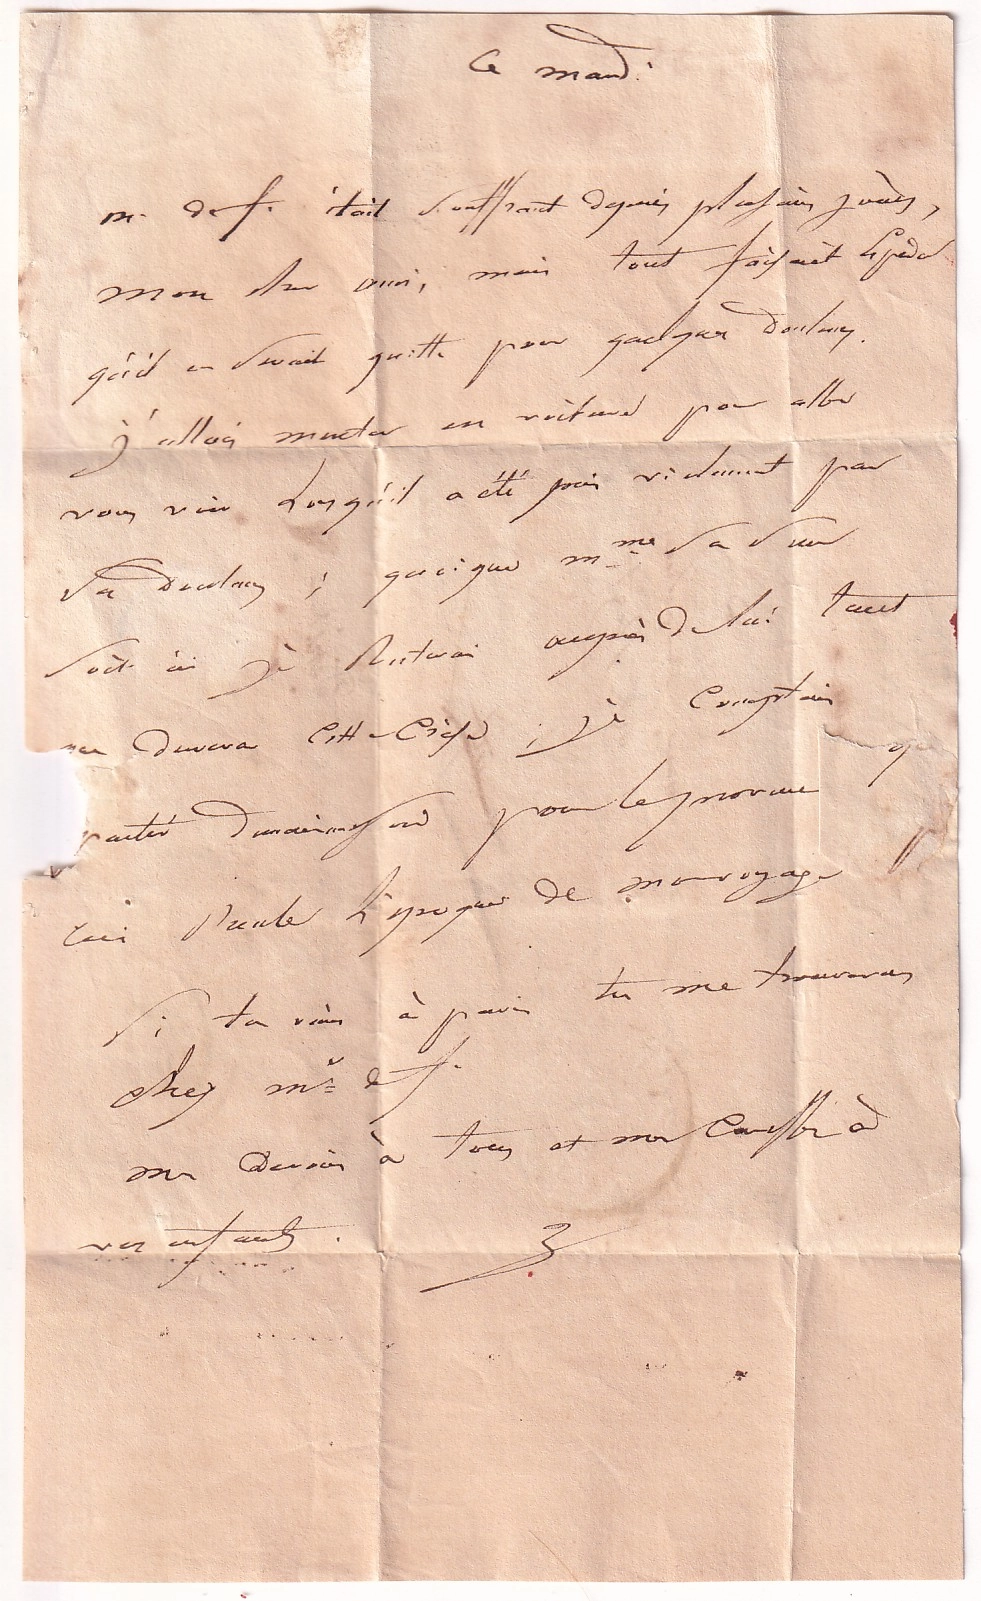 Ce mardi
m. de f. était souffrant depuis plusieurs jours,
mon cher ami, mais tout faisait espérer
qu'il en serait quitte pour quelques douleurs.
j'allois monter en voiture pour aller
vous voir lorsqu'il a été pris violemment par
sa douleur ; quoique mme sa sœur
soit ici je resterai auprès de lui tant
que durera cette crise, je comptais
partir pour le
ceci recule l'époque de mon voyage
Si tu viens à paris tu me trouveras
chez mr de f.
mes devoirs à tous et mes caresses à
vos enfants.